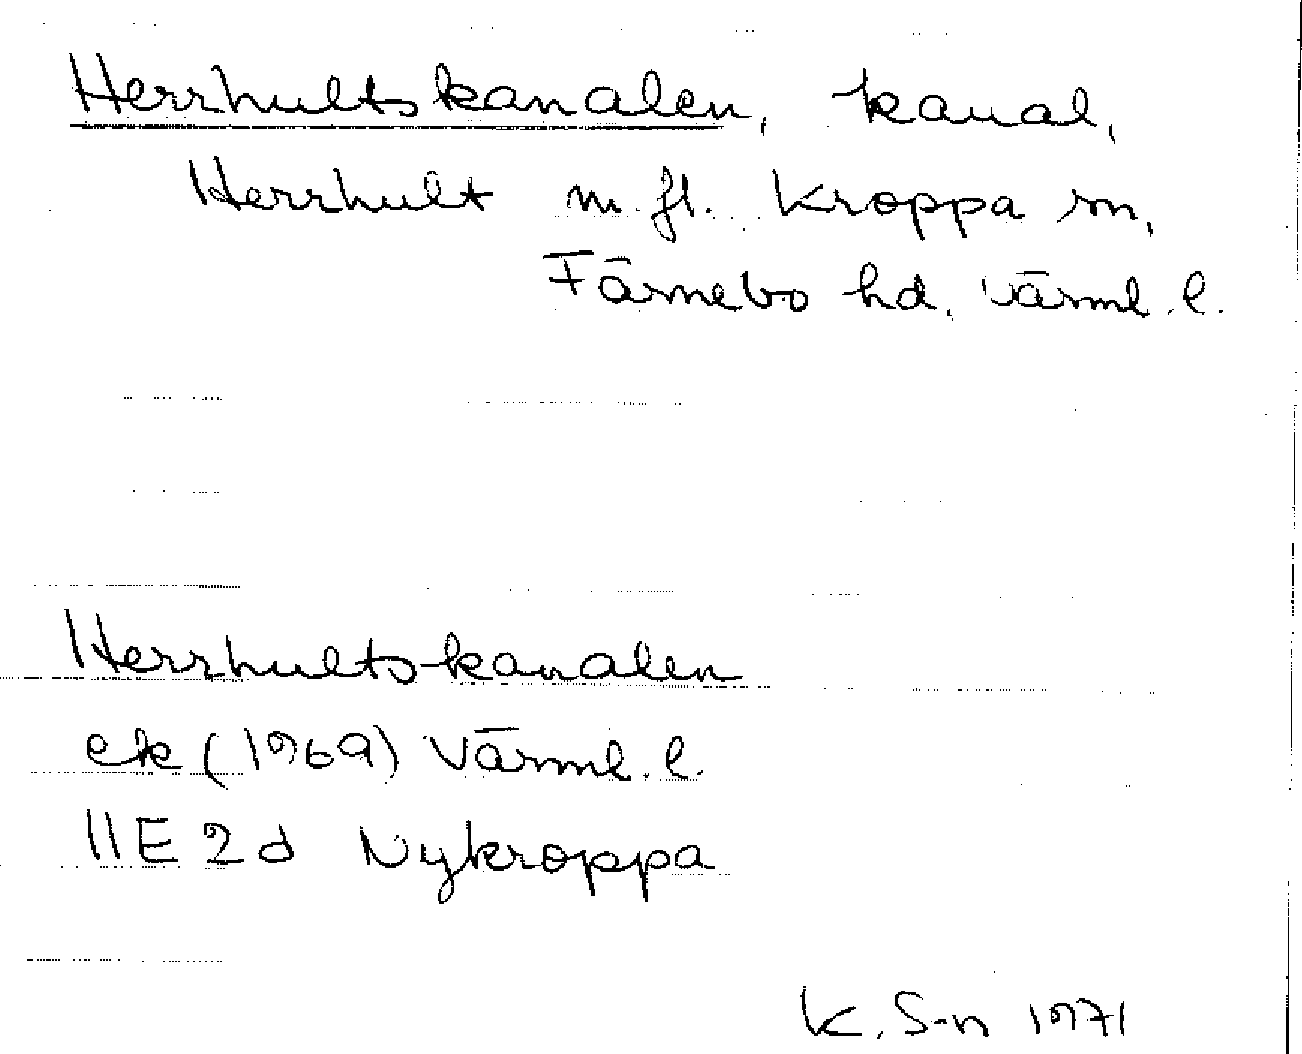 Herrhultskanalen, kanal,
Herrhult m.fl. Kroppa sn,
Färnebo hd, Värml. l.
Herrhultskanalen
ek (1969) Värml. l.
11E 2d Nykroppa
K. S-n 1971